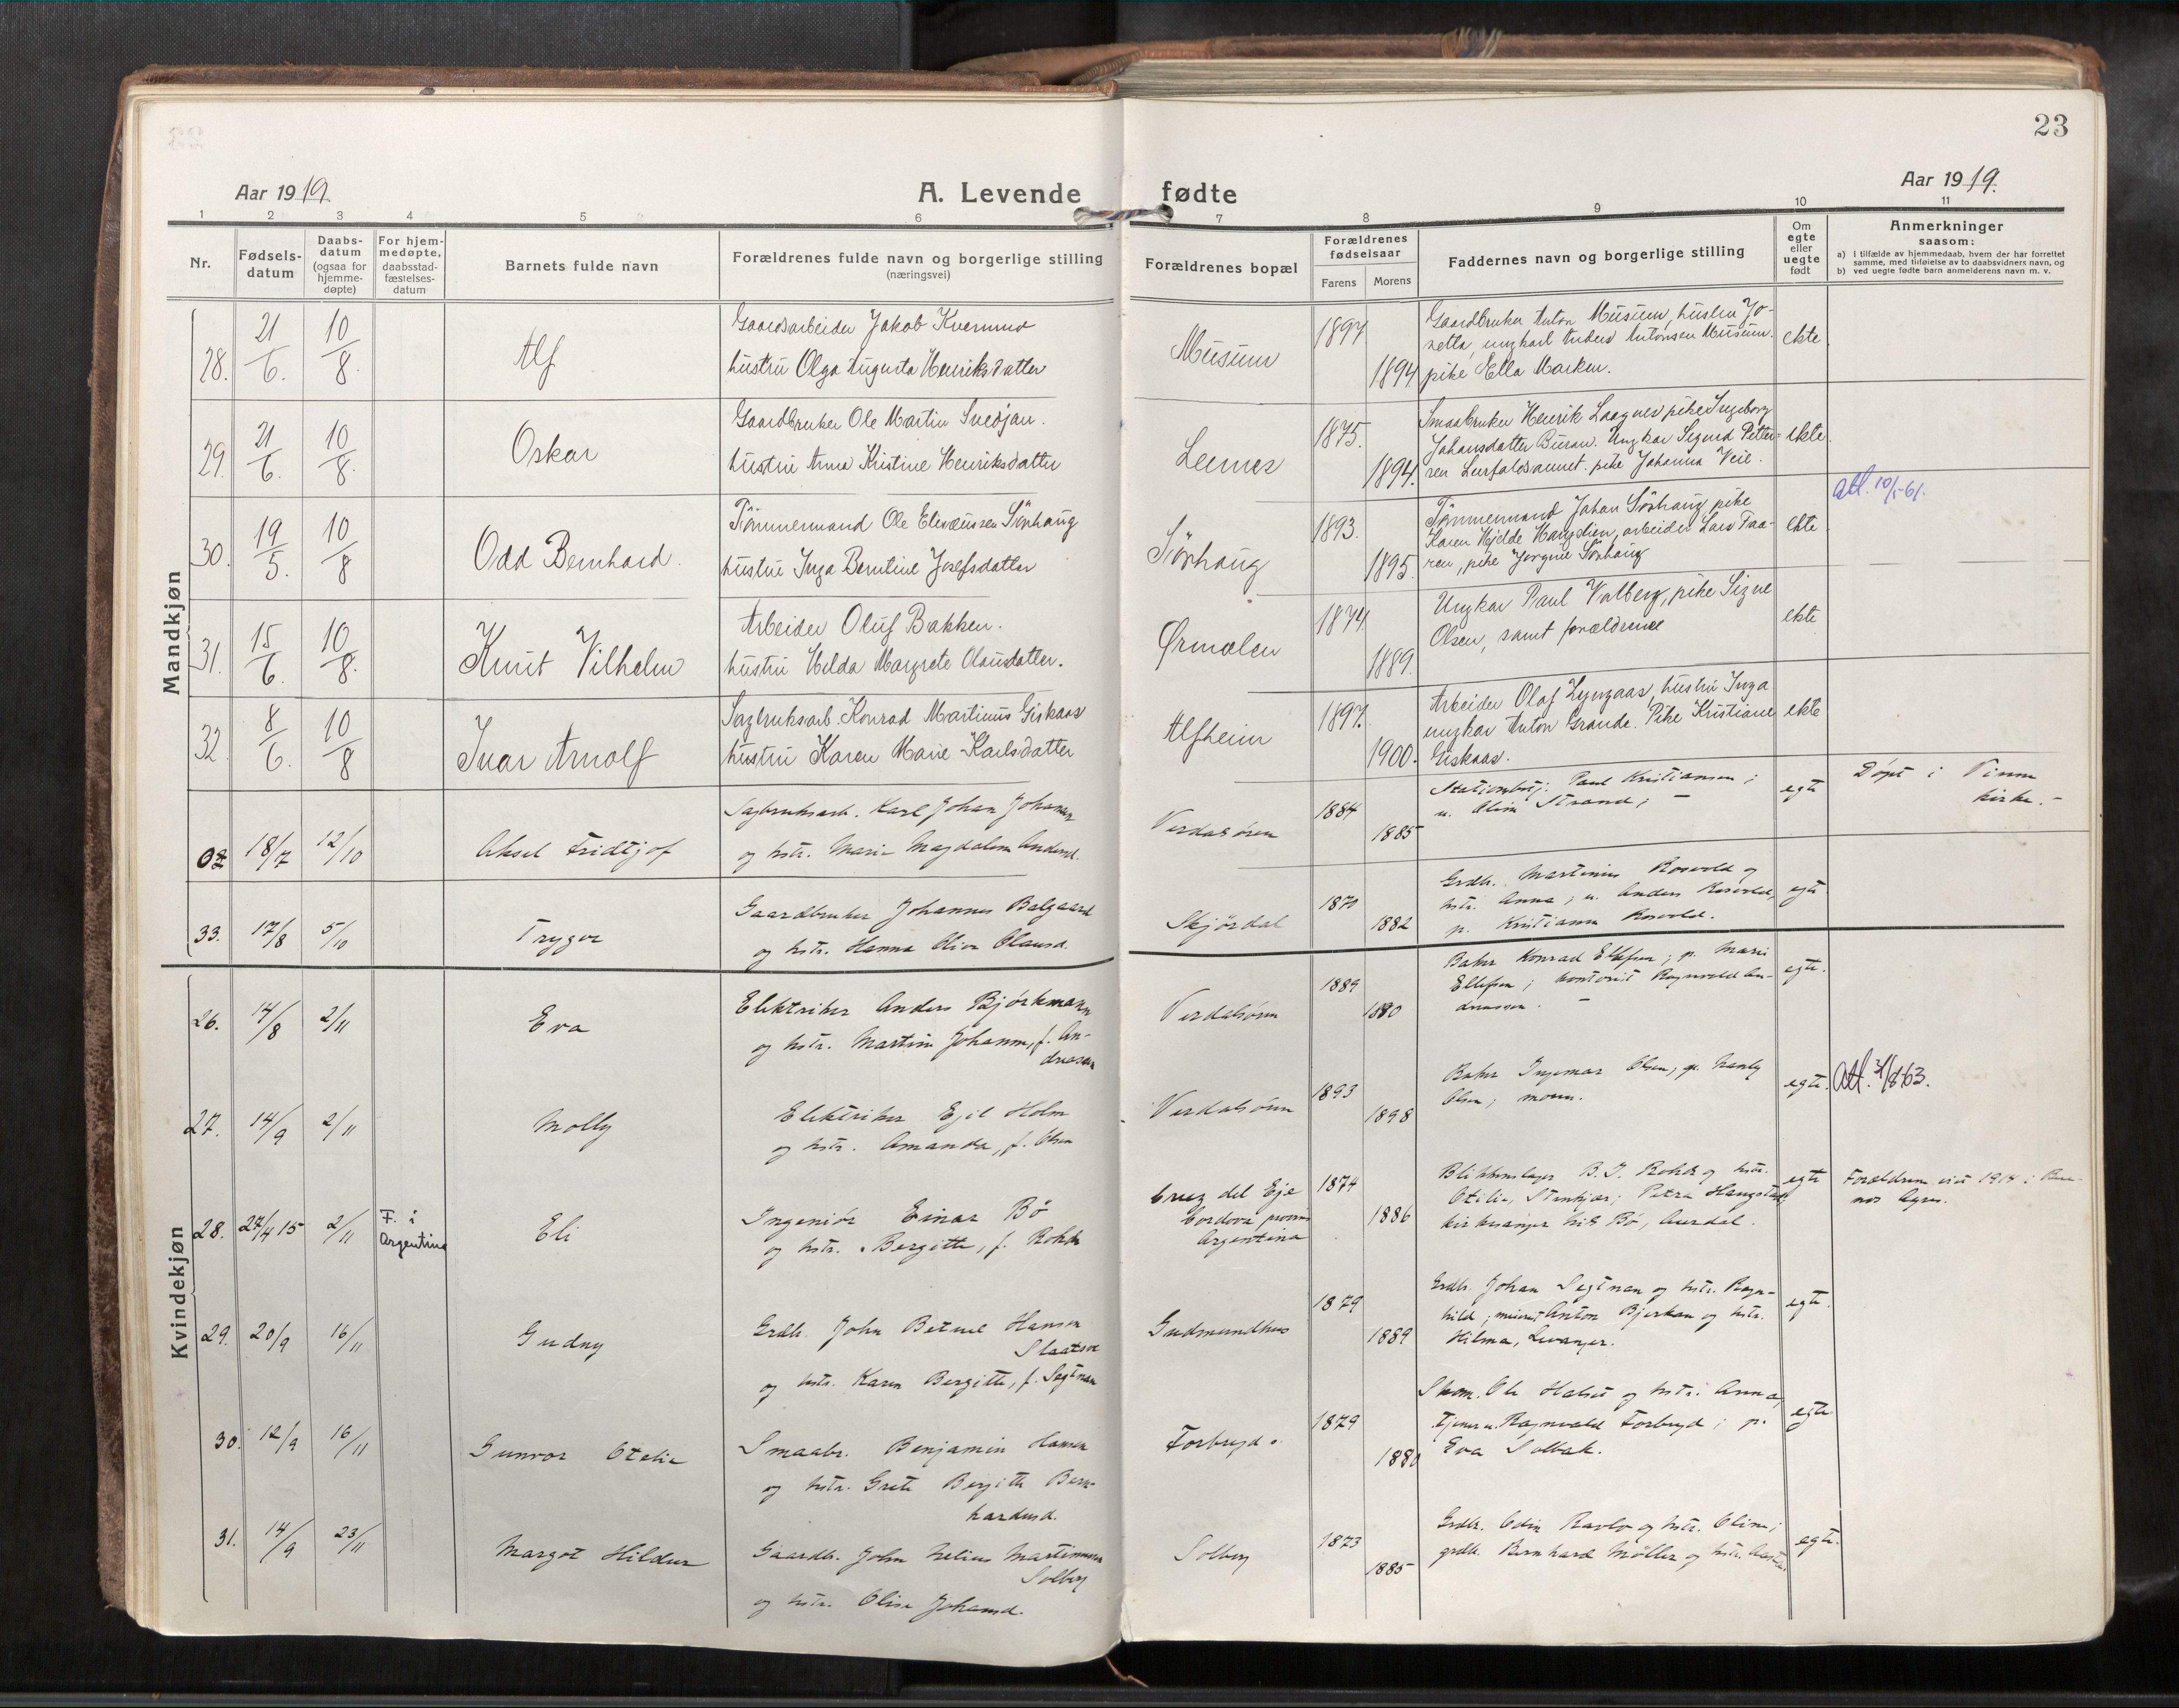 23
Aar 1919.
A. Levende fødte
Aar 1919.
1 2 3 4 5 6 7 8 9 10 11
Nr.
Fødselsdatum
Daabsdatum (ogsaa for hjemmedøpte)
For hjemmedøpte, daabsstadfæstelsesdatum
Barnets fulde navn
Forældrenes fulde navn og borgerlige stilling
(næringsvei)
Forældrenes bopæl
Forældrenes fødselsaar
Farens Morens
Faddernes navn og borgerlige stilling
Om egte eller uegte født
Anmerkninger
saasom:
a) i tilfælde av hjemmedaab, hvem der har forrettet
samme, med tilføielse av to daabsvidners navn, og
b) ved uegte fødte barn anmelderens navn m. v.
Mandkjøn
28. 21/6. 10/8. Alf
Gaardsarbeider Jakob Kvernmo
hustru Olga Augusta Henriksdatter
Musum 1897 1894
Gaardbruker Anton Musum, hustru Jo-
netta, ungkarl Anders Antonsen Musum.
pike Ella Marken.
ekte.
29. 21/6. 10/8. Oskar
Gaardbruker Ole Martin Svedjan.
hustru Anna Kristine Henriksdatter
Leernes 1875. 1894.
Smaabruker Henrik Laagnes, pike Ingeborg
Johansdatter Buran. Ungkar Sigurd Petter-
sen Leirfaldsaunet. pike Johanna Veie.
ekte.
30. 19/5. 10/8 Odd Bernhard.
Tömmermand Ole Eliseussen Sörhaug
hustru Inga Berntine Josefsdatter
Sörhaug 1893. 1895.
Tömmermand Johan Sörhaug, pike
Karen Hjelde Haugdien, arbeider Lars Faa-
ren, pike Jorgine Sörhaug
ekte
att. 10/5-61.
31. 15/6. 10/8. Knut Vilhelm
Arbeider Oluf Bakken.
hustru Hilda Margrete Olausdatter.
Ørmelen 1874. 1889.
Ungkar Paul Valberg, pike Signe
Olsen, samt forældrene
ekte
32. 8/6. 10/8 Ivar Arnolf
Sagbruksarb. Konrad Martinus Giskaas
hustru Karen Marie Karlsdatter
Alfheim 1897. 1900.
Arbeider Olaf Lyngaas, hustru Inga
ungkar Anton Grande. Pike Kristiane
Giskaas.
ekte
18/7 12/10 Aksel Fridtjof
Sagbruksarb. Karl Johan Johansen
og hstr. Marie Magdalena Andersd.
Verdalsøren 1884 1885
Stationsbetj. Paul Kristiansen;
u. Olin Strand; –
egte
Döpt i Vinne
kirke. –
33. 17/8 5/10 Trygve
Gaardbruker Johannes Balgaard
og hstr. Hanna Olive Olausd.
Skjördal 1870 1882
Grdbr. Martinius Rosvold og
hstr. Anna; u. Anders Rosvold,
p. Kristiane Rosvold.
egte
Kvindekjøn
26. 14/8 2/11 Eva
Elektriker Anders Bjørkmann
og hstr. Martine Johanne, f. An-
dreasen
Verdalsøren 1889 1880
Baker Konrad Ellefsen; p. Marie
Ellefsen; kontorist Ragnvald An-
dreassen. –
egte.
27. 14/9 2/11 Molly
Elektriker Egil Holm
og hstr. Amanda, f. Olsen
Verdalsören 1893 1898
Baker Ingemar Olsen, p. Nanly
Olsen; moren.
egte.
Att. 31/8-63.
28. 27/4 15 2/11 F. i
Argentina
Eli
Ingeniör Einar Bö
og hstr. Bergitte, f. Rohde
Cruz del Eje
Cordova provins
Argentina
1874 1886
Blikkenslager B. I. Rohde og hstr.
Otilie, Stenkjær; Petra Haugstad,
kirkesanger Nils Bø, Aurdal.
egte
Forældrene viet 1914 i Bue-
nos Ayres.
29. 20/9 16/11 Gudny
Grdbr. John Betuel Hansen
Slaatsve
og hstr. Karen Bergitte, f. Segtnan
Gudmundhus 1879 1889
Grdbr. Johan Segtnan og hstr. Ragn-
hild; murer Anton Bjerkan og hstr.
Hilma, Levanger.
egte.
30. 12/9 16/11 Gunvor Otelie
Smaabr. Benjamin Hansen
og hstr. Grete Bergitte Bern-
hardusd.
Forbregd 1879 1880
Skom. Ole Halset og hstr. Anna,
tjener u. Ragnvald Forbregd; p.
Eva Solbak.
egte
31. 14/9 23/11 Margot Hildur
Gaardb. John Nelius Martinusen
Solberg
og hstr. Olise Johansd.
Solberg 1873 1885
Grdbr. Odin Ravlo og hstr. Oline;
grdbr. Bernhard Møller og hstr.
egte.